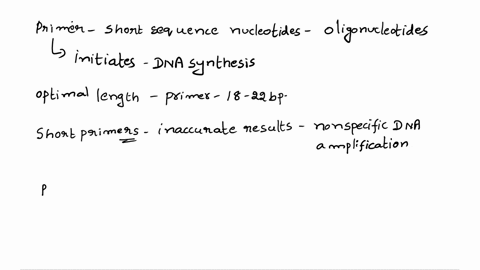 Primer - short sequence nucleotides - oligonucleotides
↳ initiates - DNA synthesis
optimal length - primer - 18-22 bp.
Short primers - inaccurate results - nonspecific DNA
amplification
P